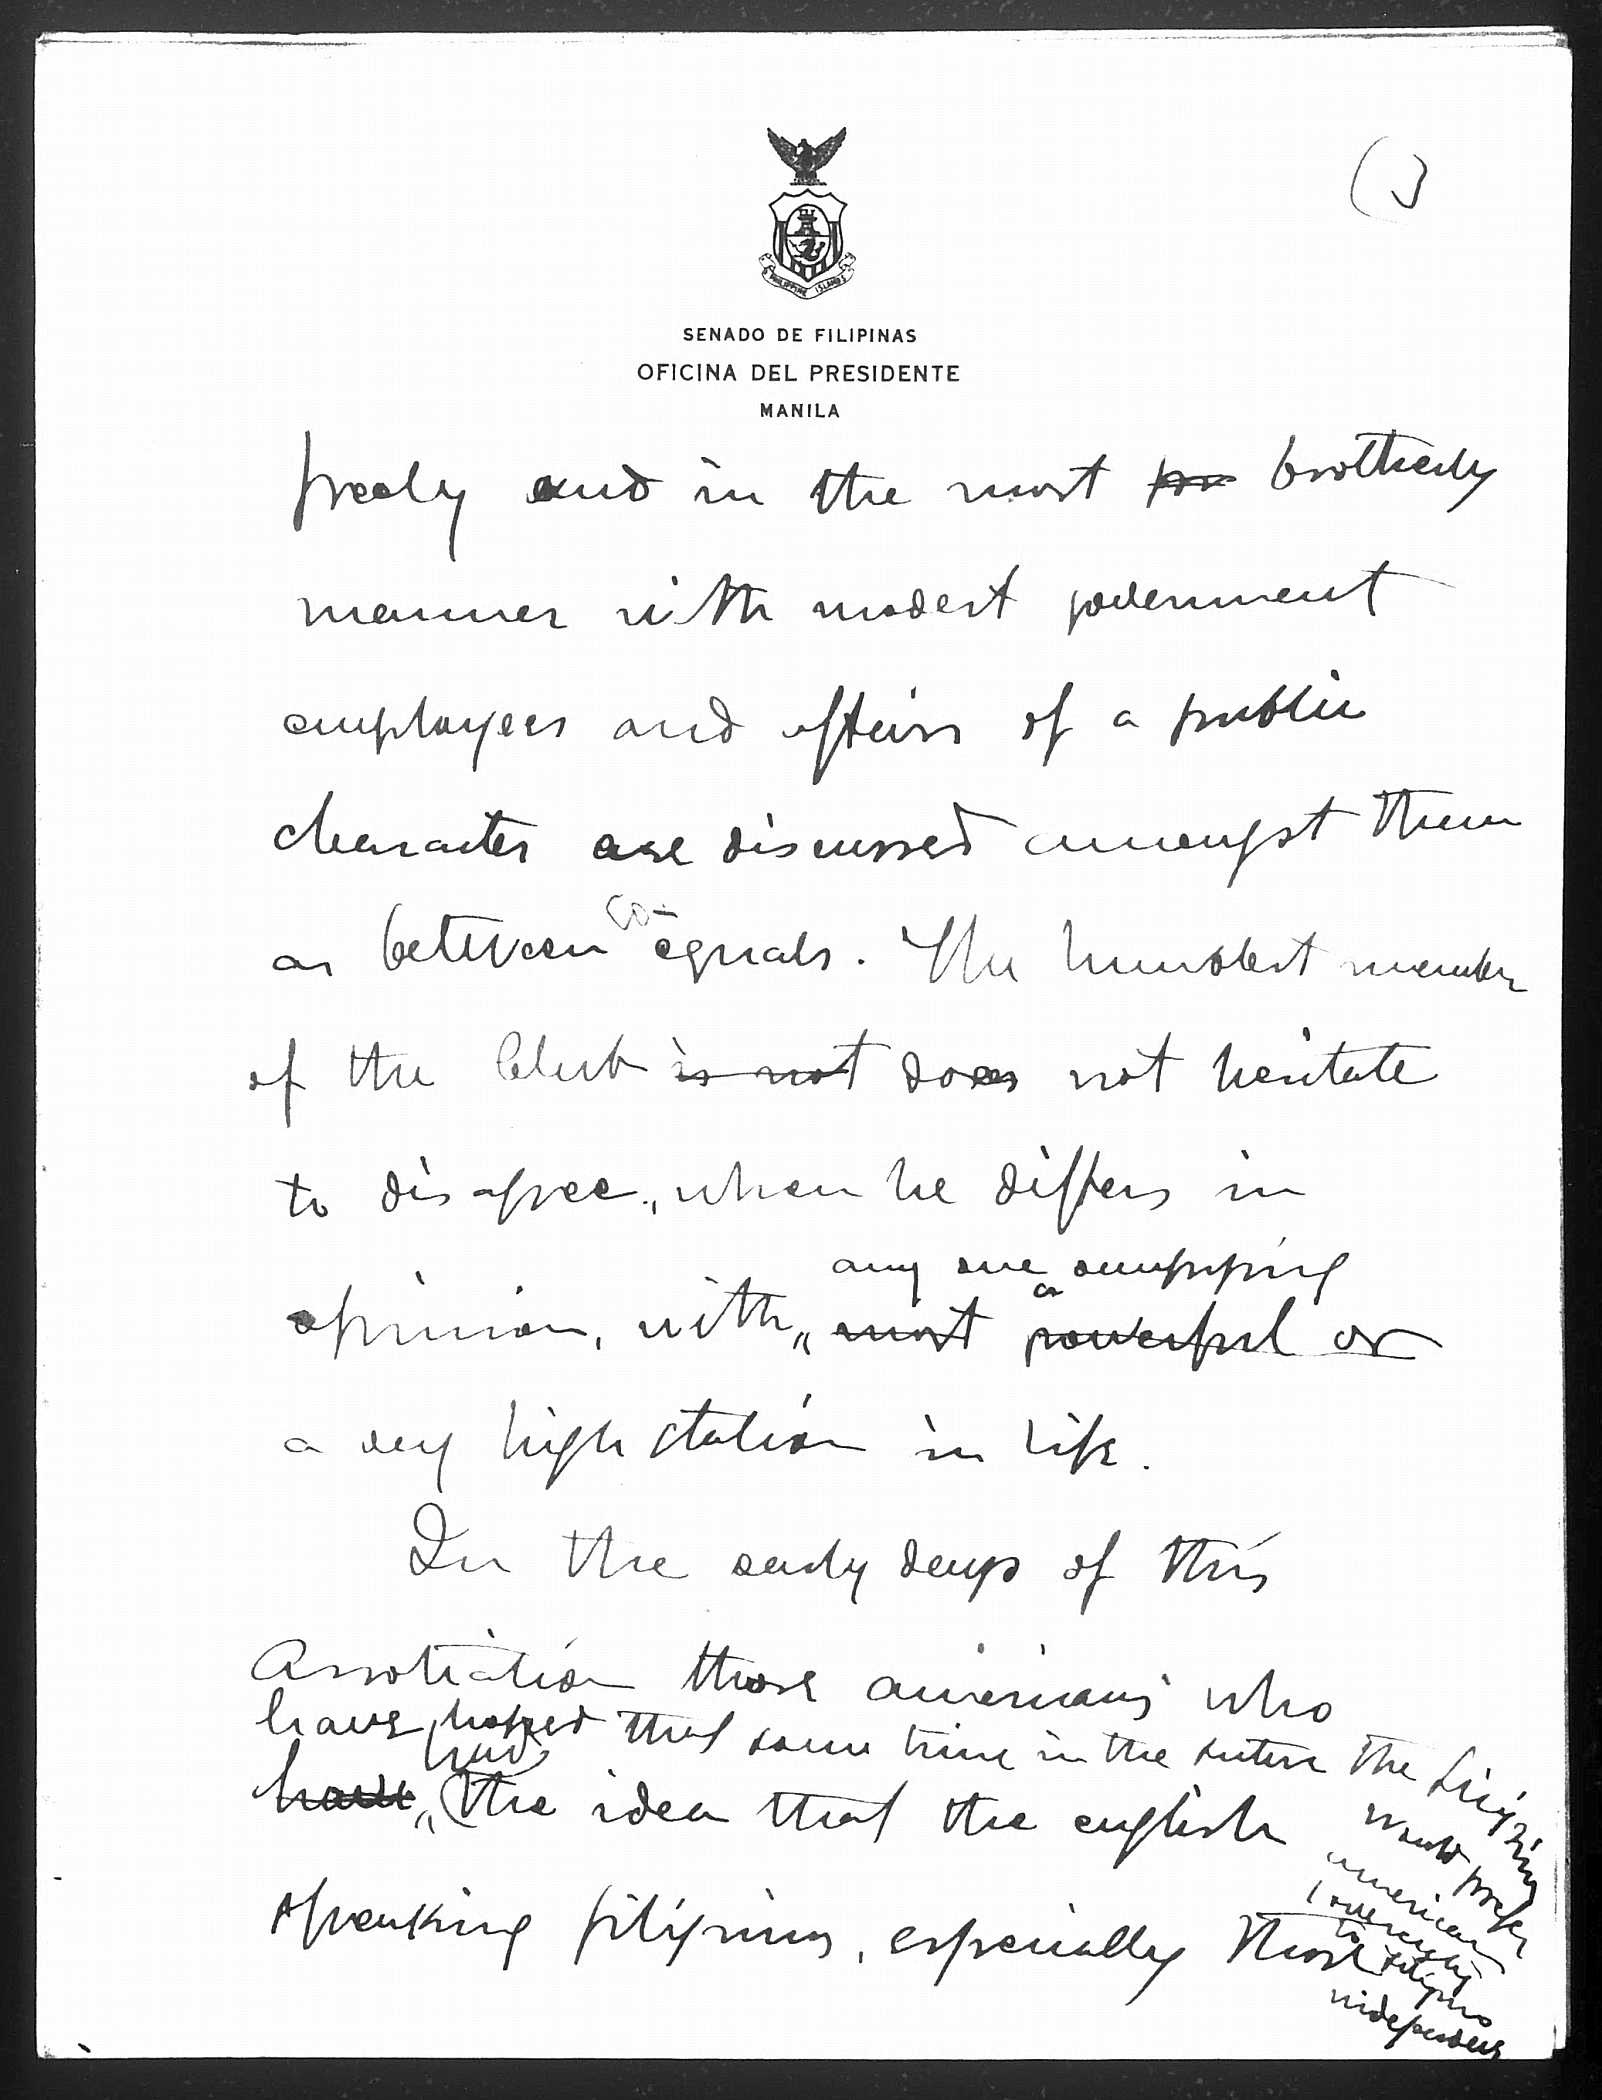 (3
PHILIPPINE ISLANDS
SENADO DE FILIPINAS
OFICINA DEL PRESIDENTE
MANILA
freely and in the most brotherly
manner with modest government
employees and affairs of a public
character are discussed amongst them
as between co-equals. The humblest member
of the Club is not does not hesitate
to disagree, when he differs in
any one occupying
a
opinion, with most powerful or
a very high station in life.
In the early days of this
Association those americans who
have hoped that some time in the future the Filipinos
would prefer
american
sovereignty
to filipino
independence
had
have (the idea that the english
speaking filipinos, especially those